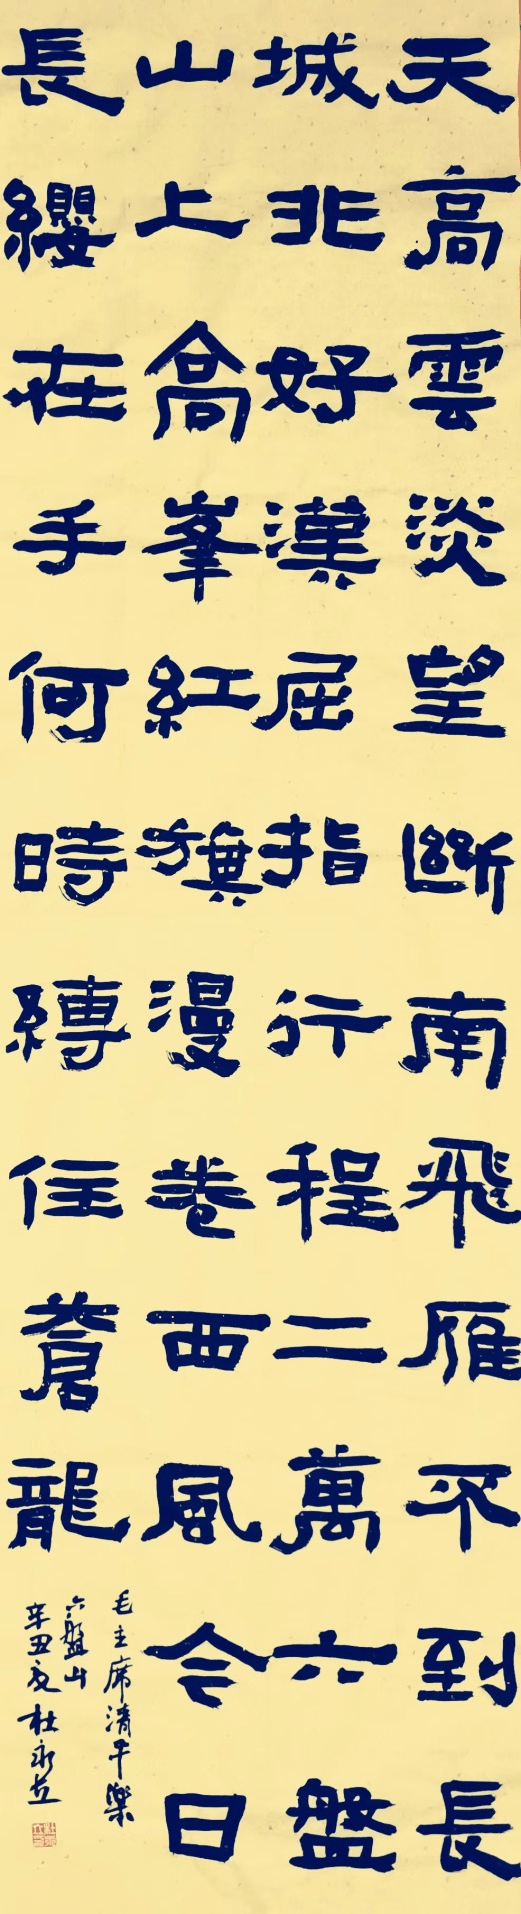 天高雲淡望斷南飛雁不到長
城非好漢屈指行程二萬六盤
山上高峯紅旗漫卷西風今日
長纓在手何時縛住蒼龍
毛主席清平樂
六盤山
辛丑夏杜永